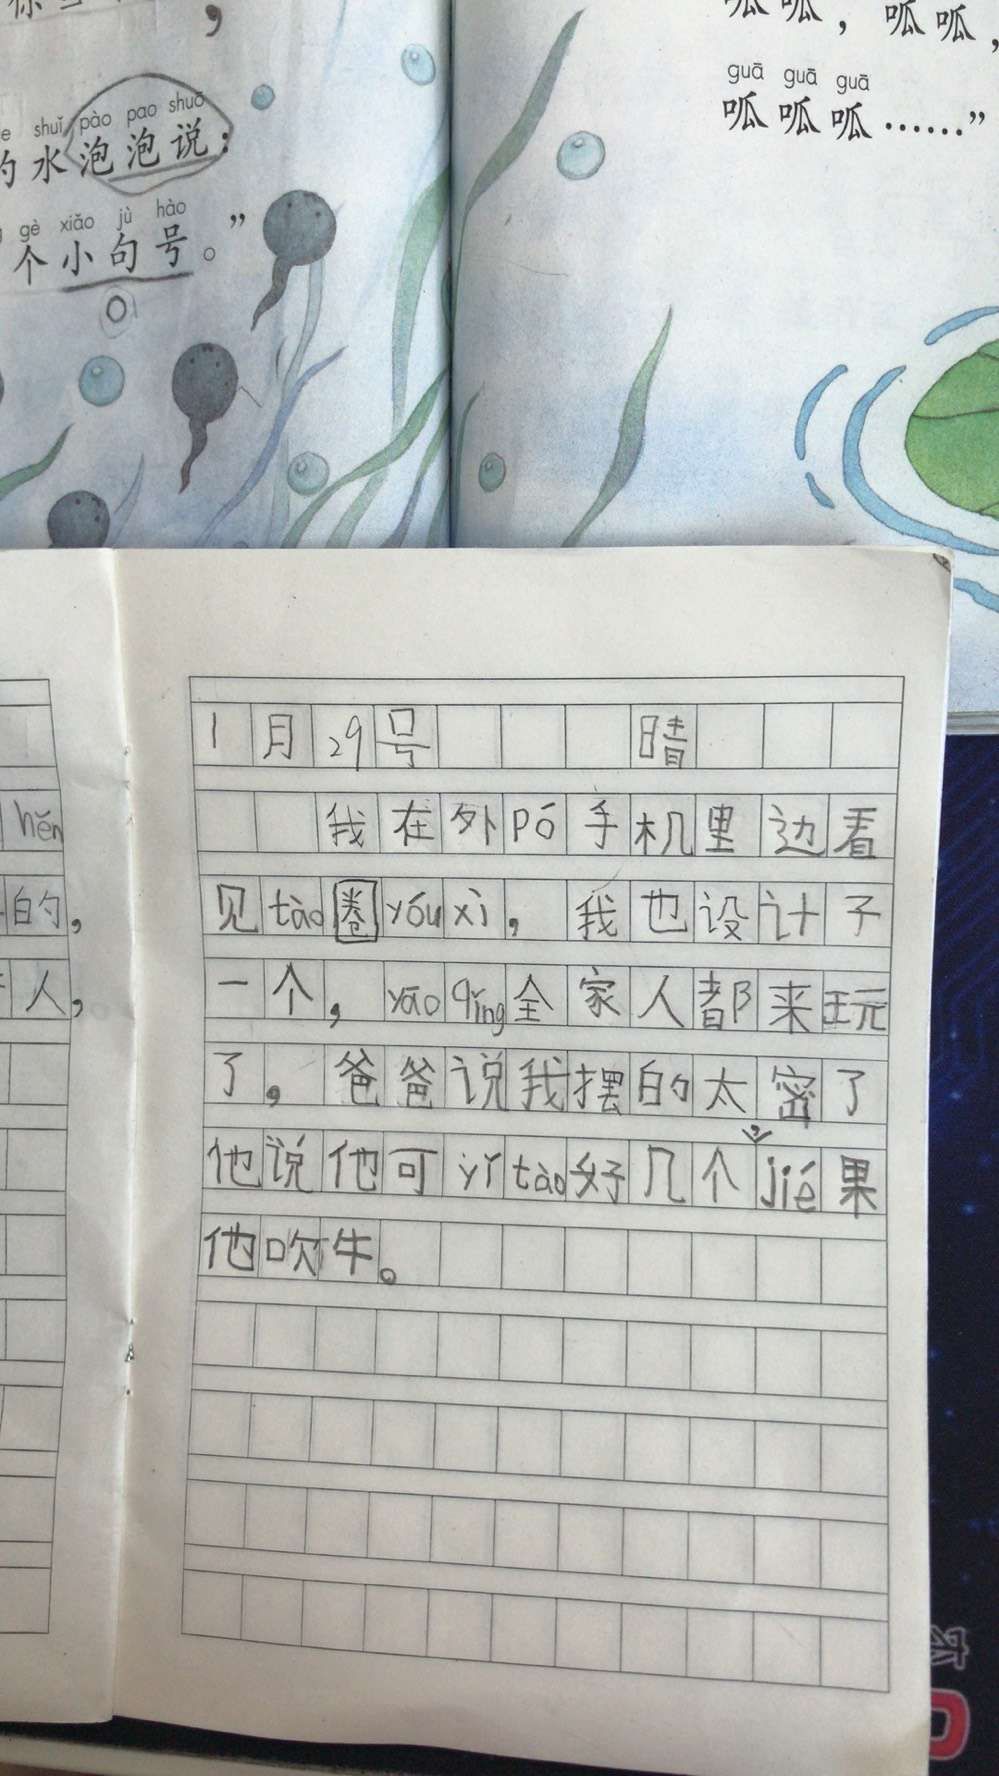 shuǐ pào pao shuō
的水泡泡说：
gè xiǎo jù hào
个小句号。”
呱呱，呱呱，
guā guā guā
呱呱呱……”
hěn
的，
人，
1月29号 晴
我在外pó手机里边看
见tào圈yóuxì，我也设计子
一个，yāoqǐng全家人都来玩
了。爸爸说我摆的太密了
他说他可yǐtào好几个，jié果
他吹牛。